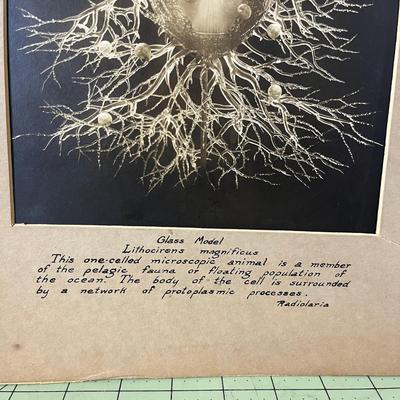 Glass Model
Lithocirens magnificus
This one-celled microscopic animal is a member
of the pelagic fauna or floating population of
the ocean. The body of the cell is surrounded
by a network of protoplasmic processes.
Radiolaria